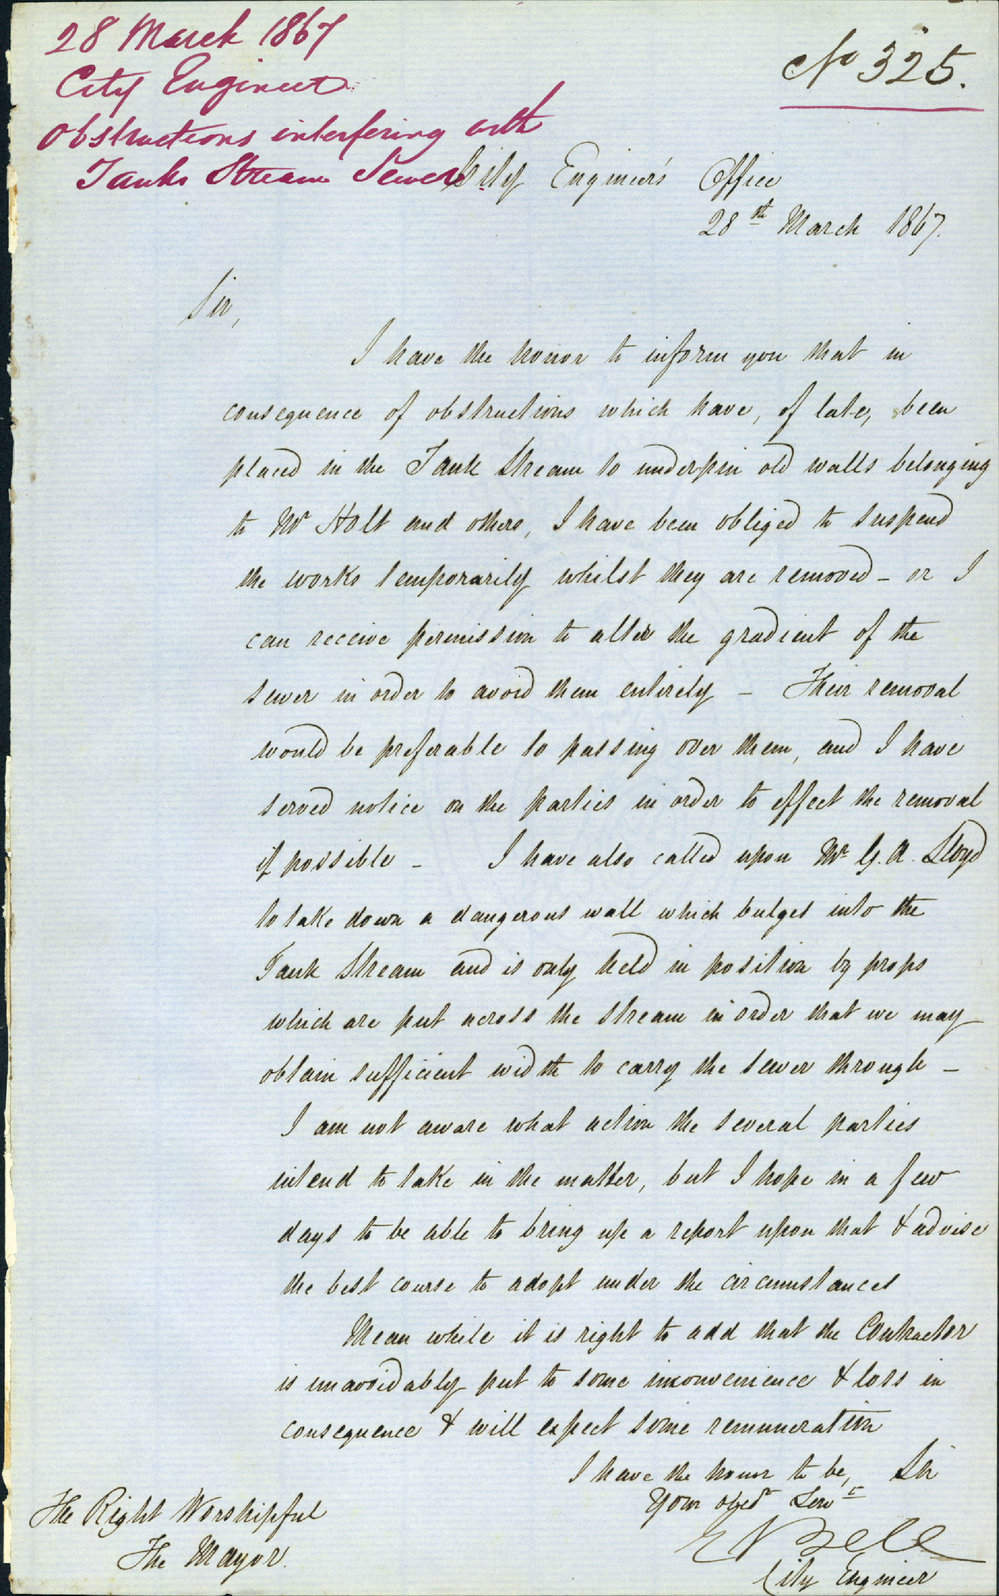 28 March 1867
City Engineer
Obstructions interfering with
Tanks Stream Sewer
No 325.
City Engineer's Office
28th March 1867.
Sir,
I have the honor to inform you that in
consequence of obstructions which have, of late, been
placed in the Tank Stream to underpin old walls belonging
to Mr Holt and others, I have been obliged to suspend
the works temporarily whilst they are removed - or I
can receive permission to alter the gradient of the
sewer in order to avoid them entirely - Their removal
would be preferable to passing over them, and I have
served notice on the parties in order to effect the removal
if possible - I have also called upon Mr G. A. Lloyd
to take down a dangerous wall which bulges into the
Tank Stream and is only held in position by props
which are put across the stream in order that we may
obtain sufficient width to carry the sewer through -
I am not aware what action the several parties
intend to take in the matter, but I hope in a few
days to be able to bring up a report upon that & advise
the best course to adopt under the circumstances
Mean while it is right to add that the Contractor
is unavoidably put to some inconvenience & loss in
consequence & will expect some remuneration
I have the honor to be, Sir
Your obedt Servt
E Bell
City Engineer
The Right Worshipful
The Mayor.